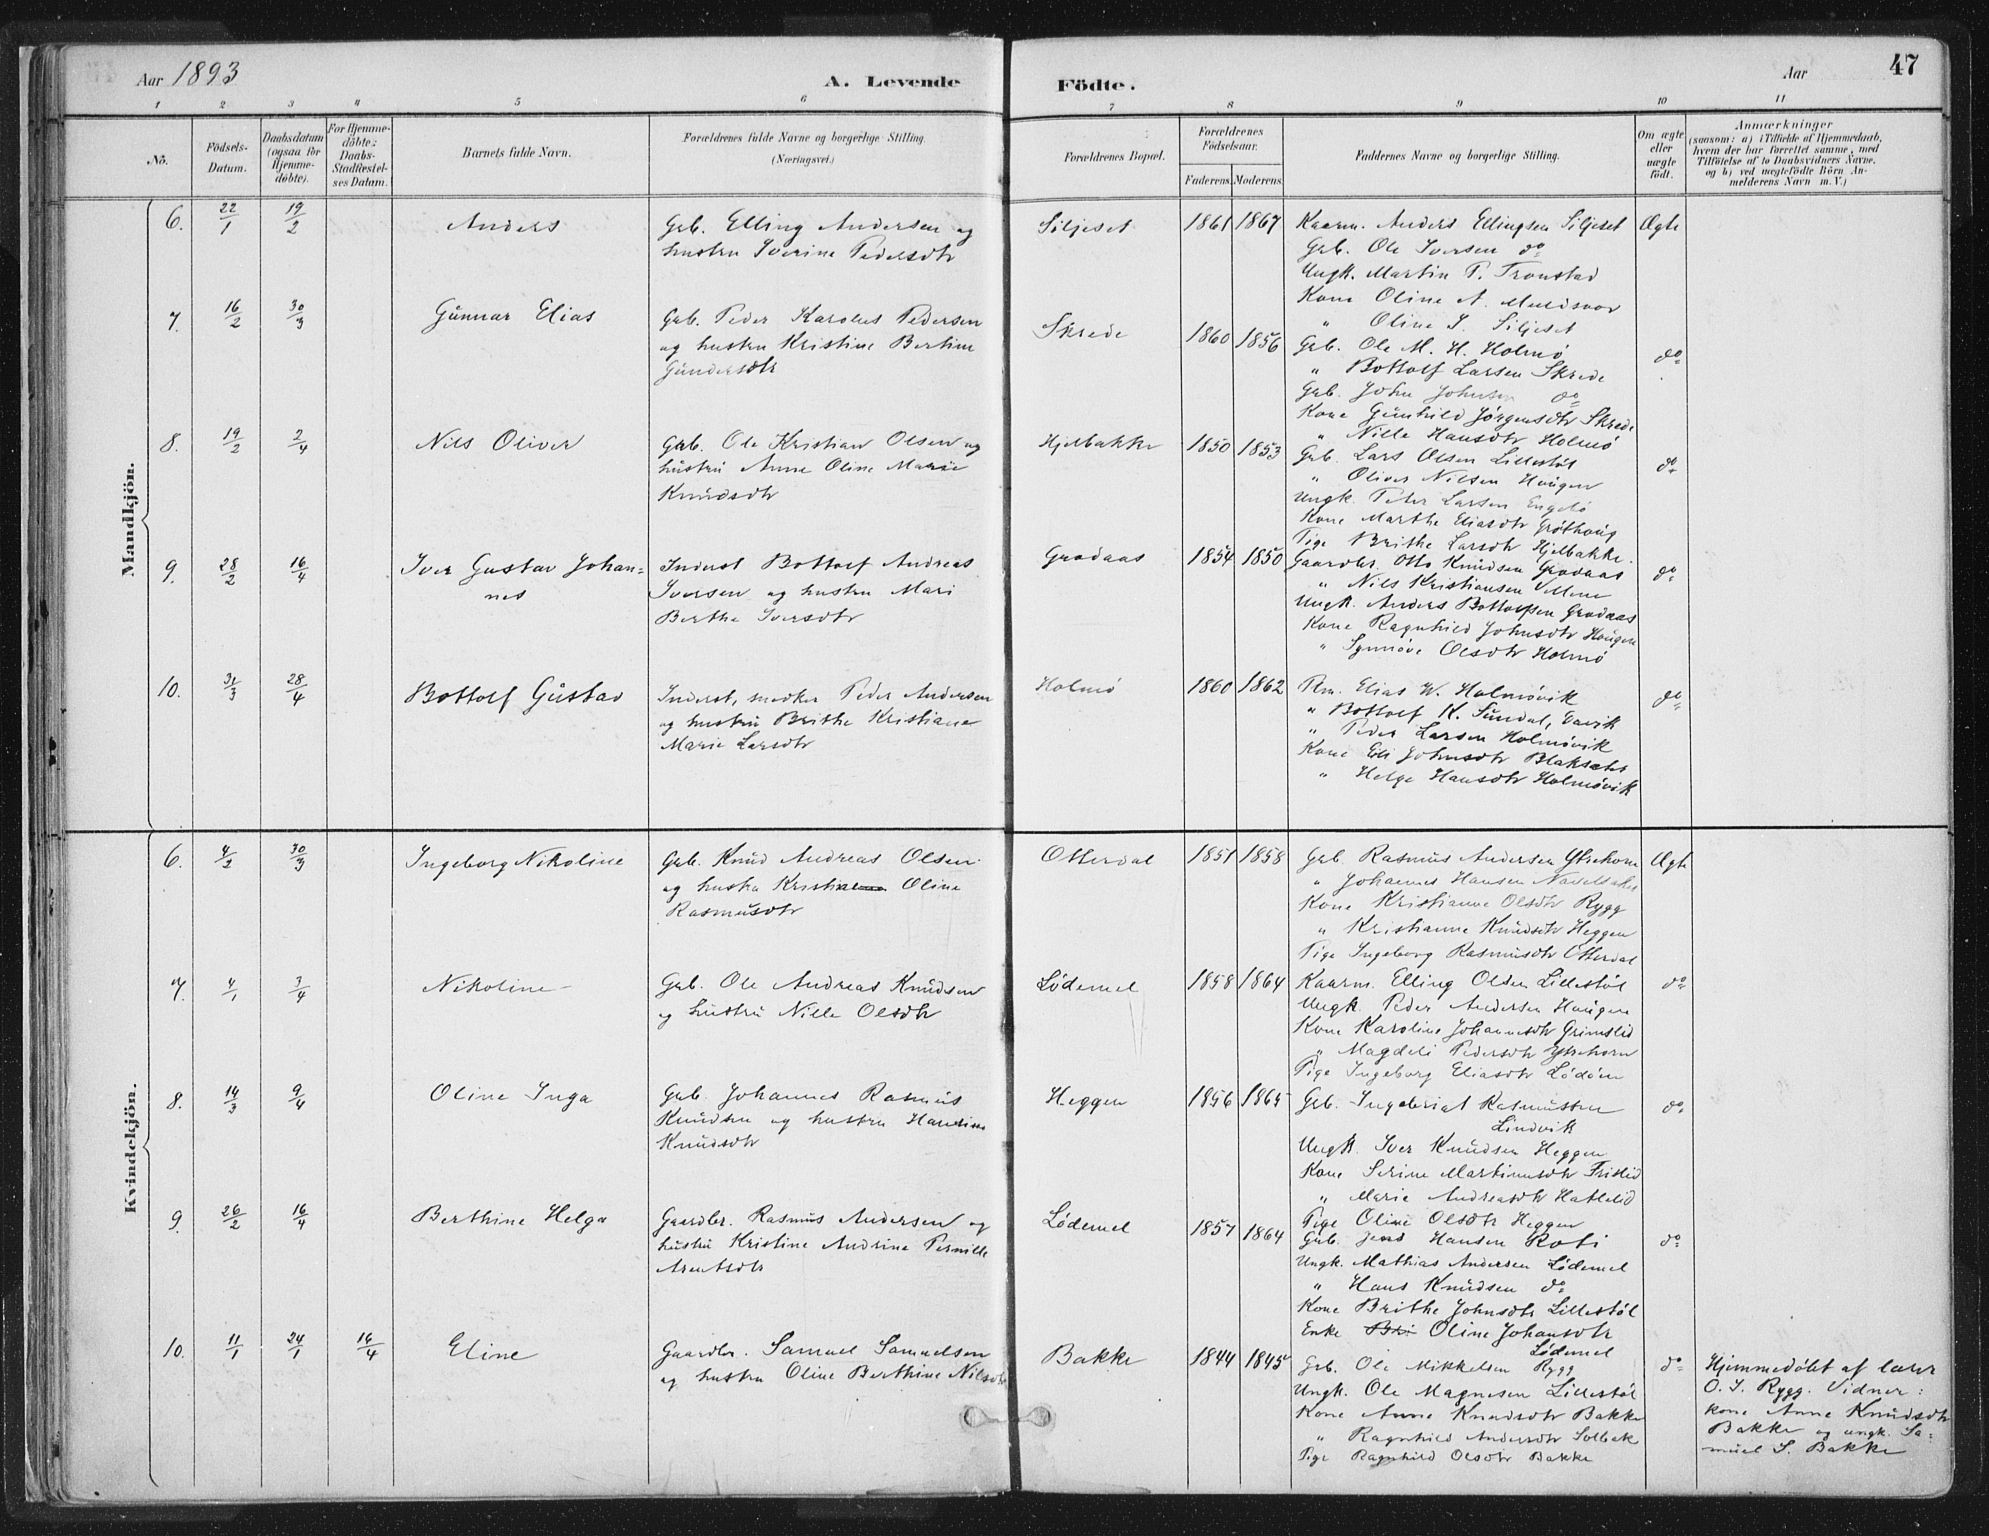 Aar 1893
A. Levende
Födte.
Aar
47
1 2 3 4 5 6 7 8 9 10 11
No.
Födsels-Datum.
Daabsdatum (ogsaa for Hjemme-döbte).
For Hjemme-döbte: Daabs-Stadfæstel-ses Datum.
Barnets fulde Navn.
Forældrenes fulde Navne og borgerlige Stilling. (Næringsvei.)
Forældrenes Bopæl.
Forældrenes Födselsaar.
Faderens. Moderens.
Faddernes Navne og borgerlige Stilling.
Om ægte eller uægte födt.
Anmærkninger
(saasom: a) i Tilfælde af Hjemmedaab, hvem der har forrettet samme, med Tilföielse af to Daabsvidners Navne. og b) ved uægtefödte Börn An-melderens Navn m. V.)
Mandkjön.
6. 22/1 19/2 Anders
Grb. Elling Andersen og
hustru Iverine Pedersdtr
Siljeset 1861 1867
Kaarm. Anders Ellingsen Siljeset
Grb. Ole Iversen do
Ungk. Martin P. Tronstad
Kone Oline A. Muldsvor
" Oline I. Siljeset
Ægte
7. 16/2 30/3 Gunnar Elias
Grb. Peder Karolus Pedersen
og hustru Kristine Bertine
Gundersdtr
Skrede 1860 1856
Grb. Ole M. H. Holmö
" Bottolf Larsen Skrede
Grb. John Johnsen do
Kone Gunhild Jörgensdtr Skrede
" Nille Hansdtr Holmö
do
8. 19/2 2/4 Nils Oliver
Grb. Ole Kristian Olsen og
hustru Anne Oline Marie
Knudsdtr
Hjelbakke 1850 1853
Grb. Lars Olsen Lillestöl
" Oliver Nilsen Haugen
Ungk. Peter Larsen Engelö
Kone Marthe Eliasdtr Gröthaug
Pige Brithe Larsdtr Hjelbakke.
do
9. 28/2 16/4 Iver Gustav Johan=
nes
Inderst Bottolf Andreas
Iversen og hustru Mari
Berthe Iversdtr
Grodaas 1854 1850
Gaardbr. Otto Knudsen Grodaas
" Nils Kristiansen Vellene
Ungk. Anders Bottolfsen Grodaas
Kone Ragnhild Johnsdtr Haugen
" Synnöve Olsdtr Holmö
do
10. 31/3 28/4 Bottolf Gustav
Inderst, snedker Peder Andersen
og hustru Brithe Kristiane
Marie Larsdtr
Holmö 1860 1862
Pm. Elias W. Holmövik
" Bottolf K. Sundal, Davik
" Peder Larsen Holmövik
Kone Eli Johnsdtr Blaksæter
" Helge Hansdtr Holmövik
do
Kvindekjön.
6. 4/2 30/3 Ingeborg Nikoline
Grb. Knud Andreas Olsen
og hustru Kristiane Oline
Rasmusdtr
Otterdal 1851 1858
Grb. Rasmus Andersen Ytrehorn
" Johannes Hansen Navelsaker
Kone Kristianne Olsdtr Rygg
" Kristianne Knudsdtr Heggen
Pige Ingeborg Rasmusdtr Otterdal
Ægte
7. 4/1 3/4 Nikoline
Grb. Ole Andreas Knudsen
og hustru Nille Olsdtr
Lödemel 1858 1864
Kaarm. Elling Olsen Lillestöl
Ungk. Peder Andersen Haugen
Kone Karoline Johannesdtr Grimslid
" Magdeli Pedersdtr Ytrehorn
Pige Ingeborg Eliasdtr Lödöen
do
8. 14/3 9/4 Oline Inga
Grb. Johannes Rasmus
Knudsen og hustru Hansine
Knudsdtr
Heggen 1856 1865
Grb. Ingebrigt Rasmussen
Lindvik
Ungk. Iver Knudsen Heggen
Kone Serine Martinusdtr Frislid
" Marie Andreasdtr Hattelid
Pige Oline Olsdtr Heggen
do
9. 26/2 16/4 Berthine Helga
Gaardbr. Rasmus Andersen og
hustru Kristine Andrine Pernille
Arentsdtr
Lödemel 1857 1864
Grb. Jens Hansen Roti
Ungk. Mathias Andersen Lödemel
" Hans Knudsen do
Kone Brithe Johnsdtr Lillestöl
Enke Bri Oline Johansdtr
Lödemel
do
10. 11/1 24/1 16/4 Eline
Gaardbr. Samuel Samuelsen
og hustru Oline Berthine Nilsdtr
Bakke 1844 1845
Grb. Ole Mikkelsen Rygg
Ungk. Ole Magnesen Lillestöl
Kone Anne Knudsdtr Bakke
" Ragnhild Andersdtr Solbak
Pige Ragnhild Olsdtr Bakke
do
Hjemmedöbt af lærer
O. I. Rygg. Vidner:
kone Anne Knudsdtr
Bakke og ungk. Sa=
muel S. Bakke